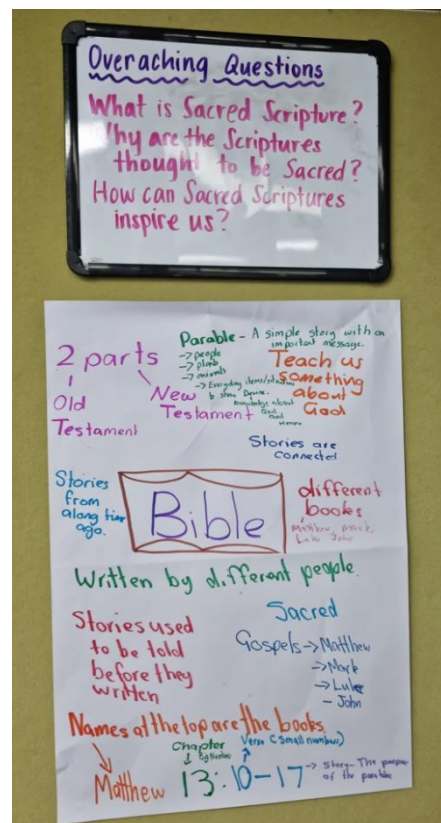 Overaching Questions
What is Sacred Scripture?
Why are the Scriptures
thought to be Sacred?
How can Sacred Scriptures
inspire us?
Parable - A simple story with an
important message.
→ people
→ plants
→ animals
→ Everyday items/situations
to share Divine
knowledge about
God
and
Heaven
2 parts
Old
Testament
New
Testament
Teach us
something
about
God
Stories are
connected
Stories
from
along time
ago.
Bible
different
books
Matthew, Mark,
Luke John
Written by different people
Stories used
to be told
before they
written
Sacred
Gospels → Matthew
→ Mark
→ Luke
- John
Names at the top are the books
Chapter
Big Numbers
Verse (small numbers)
Matthew 13:10-17 → Story - The purpose
of the parables